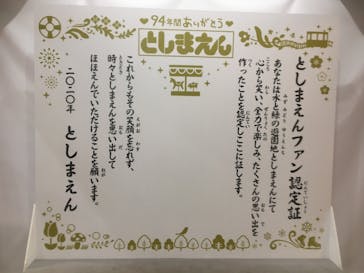 94年間ありがとう
としまえん
としまえんファン認定証
あなたは水と緑の遊園地としまえんにて
心から笑い、全力で楽しみ、たくさんの思い出を
作ったことを認定しここに証します。
これからもその笑顔を忘れず、
時々としまえんを思い出して
ほほえんでいただけることを願います。
二〇二〇年 としまえん